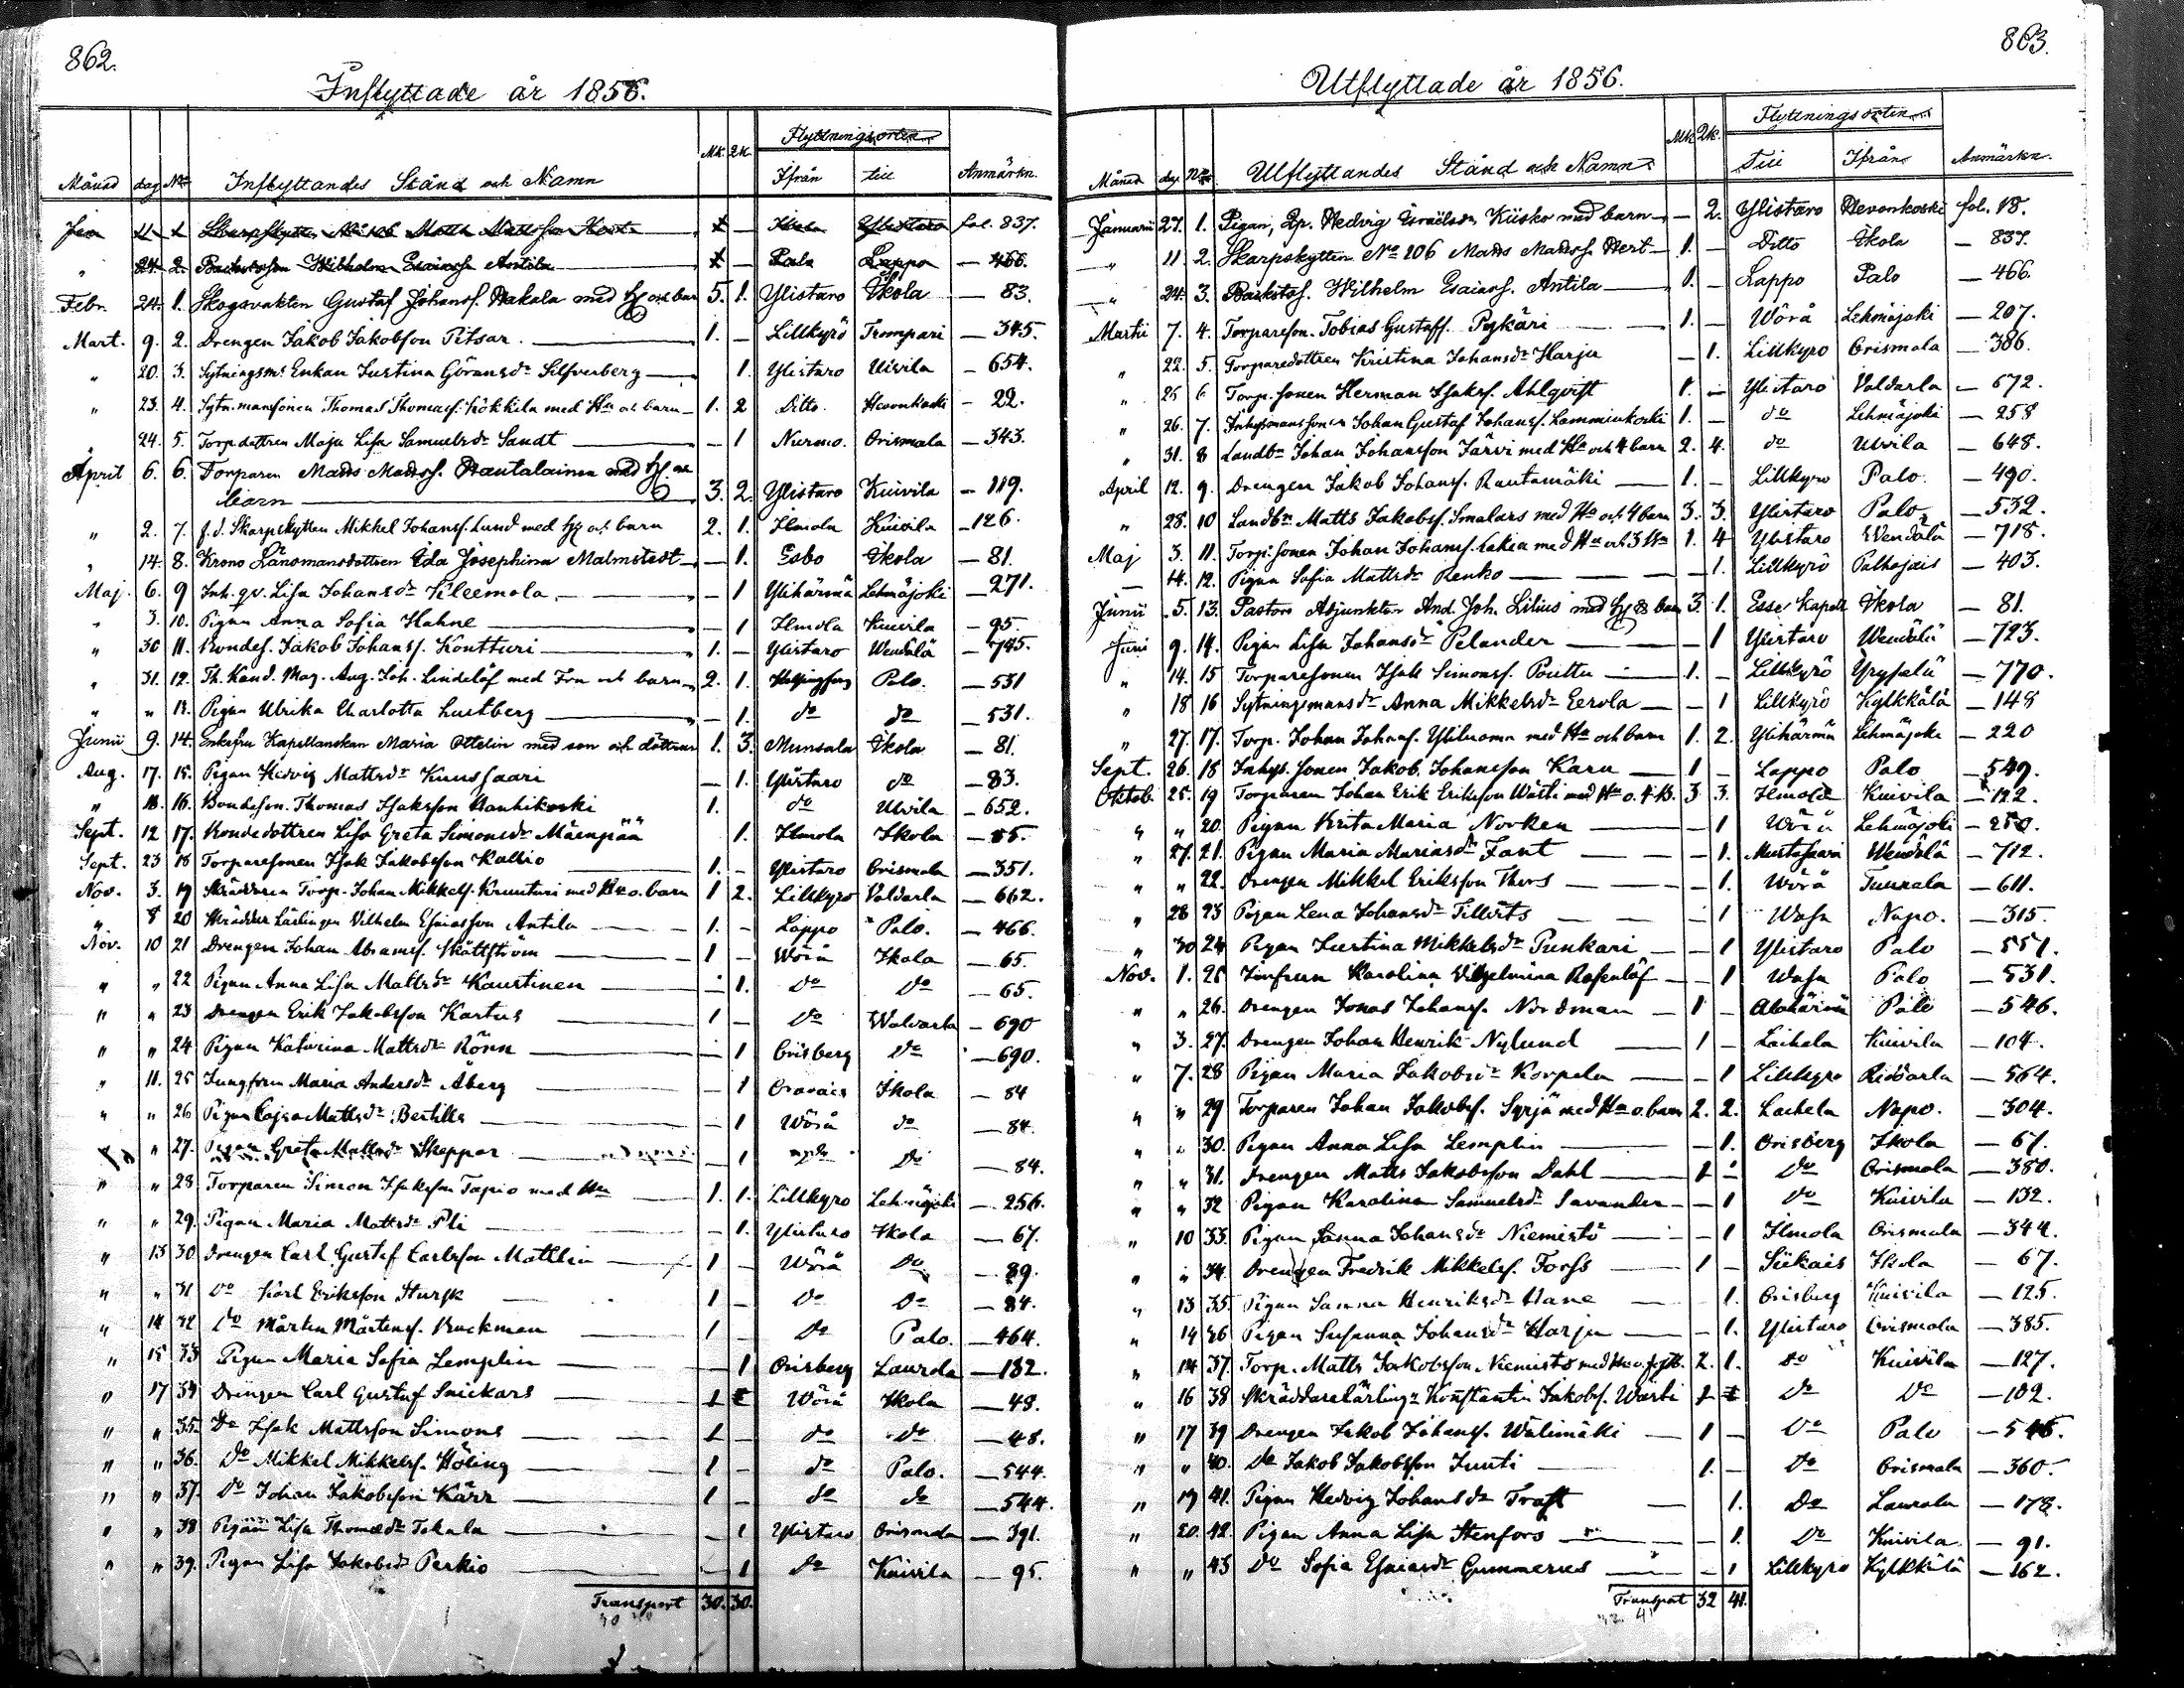 862.
Inflyttade år 1856.
Flyttningsorten
Månad dag No Inflyttandes Stånd och Namn Mk. Qk. Ifrån till Anmärkn.
Jan 11 1 Skarpskytten Matts Mattsson Hert 1 — Ylistaro fol. 837.
" 24. 2. Backstuson Wilhelm Esaiass. Antila 1 — Palo Lappo — 466.
Febr. 24. 1. Skogsvakten Gustaf Johanss. Hakala med H och barn 5. 1. Ylistaro Ikola — 83.
Mart. 9. 2. Drengen Jakob Jakobsson Pitsar. 1. — Lillkyrö Trompari — 345.
" 20. 3. Sytningsms Enkan Justina Göransdr Silfverberg — 1. Ylistaro Ulvila — 654.
" 23. 4. Sytn.mansonen Thomas Thomass. Kökkila med Hu och barn — 1. 2 Ditto. Hevonkoski — 22.
" 24. 5. Torp.dottren Maja Lisa Samuelsdr Sandt — 1 Nurmo. Orismala — 343.
April 6. 6. Torparen Matts Mattss. Hautalainen med H och
barn 3. 2. Ylistaro Kuivila — 119.
" 2. 7. f.d. Skarpskytten Mikkel Johanss. Lund med H och barn 2. 1. Ilmola Kuivila — 126.
" 14. 8. Krono Länsmansdottren Ida Josephina Malmstedt — 1. Esbo Ikola — 81.
Maj. 6. 9 Inh. qv. Lisa Johansdr Sileemola — 1 Ylihärmä Lehmäjoki — 271.
" 3. 10. Pigan Anna Sofia Hahne — 1 Ilmola Kuivila — 95.
" 30 11. Bondes. Jakob Johanss. Kontturi 1. — Ylistaro Wendälä — 745.
" 31. 12. Th. Kand. Mag. Aug. Joh. Lindelöf med Fru och barn 2. 1. Helsingfors Palo. — 531
" " 13. Pigan Ulrika Charlotta Lustberg — 1. do do — 531.
Junii 9. 14. Enkefru Kapellanskan Maria Ottelin med son och döttrar 1. 3. Munsala Ikola — 81.
Aug. 17. 15. Pigan Hedvig Mattsdr Kuusisaari — 1. Ylistaro do — 83.
" 18. 16. Bondeson. Thomas Isaksson Hanhikoski 1. do Ulvila — 652.
Sept. 12 17. Bondedottren Lisa Greta Simonsdr Mäenpää 1. Ilmola Ikola — 85.
Sept. 23 18 Torparesonen Isak Jakobsson Kallio 1. — Ylistaro Orismala — 351.
Nov. 3. 19 Skräddaren Torp. Johan Mikkels. Kuusturi med Hu o. barn 1 2. Lillkyro Valdarla — 662.
" 8 20 Skräddar Lärlingen Vilhelm Esaiasson Antila 1. — Lappo Palo. — 466.
Nov. 10 21 Drengen Johan Abramss. Skättström 1 — Wörå Ikola — 65.
" " 22 Pigan Anna Lisa Mattsdr Kaustinen — 1. Do Do — 65.
" " 23 Drengen Erik Jakobsson Kartus 1 — Do Walvarla — 690
" " 24 Pigan Katarina Mattsdr Rönn — 1 Orisberg Do — 690.
" 11. 25 Jungfrun Maria Andersdr Åberg — 1 Oravais Ikola — 84
" " 26 Pigan Cajsa Mattsdr Bertills — 1 Wörå do — 84.
" " 27. Pigan Greta Mattsdr Skeppar — 1 Do — 84.
" " 28 Torparen Simon Isaksson Tapio med Hu 1. 1. Lillkyro Lehmäjoki — 256.
" " 29. Pigan Maria Mattsdr Pli — 1. Ylistaro Ikola — 67.
" 13 30 Drengen Carl Gustaf Carlsson Matllin 1 — Wörå Do — 89.
" " 31 Do Karl Eriksson Hursk 1 — Do Do — 84.
" 14 32 Do Mårten Mårtenss. Backman 1 — Do Palo. — 464.
" 15 33 Pigan Maria Sofia Lemplin — 1 Orisberg Laurola — 182.
" 17 34 Drengen Carl Gustaf Snickars 1 Wörå Ikola — 48.
" " 35. Do Isak Mattsson Simons 1 — do do — 48.
" " 36. Do Mikkel Mikkelss. Höling 1 — do Palo. — 544.
" " 37. Do Johan Jakobsson Kärr 1 — do do — 544.
" " 38 Pigan Lisa Thomasdr Tokala — 1 Ylistaro Orismala — 391.
" " 39. Pigan Lisa Jakobsdr Perkio — 1 Do Kuivila — 95.
Transport 30. 30.
863.
Utflyttade år 1856.
Flyttningsorten
Månad dag No Utflyttandes Stånd och Namn Mk Qk. Till Ifrån Anmärkn.
Januarii 27. 1. Pigan, Qp. Hedvig Israëlsdr Kiisko med barn — 2. Ylistaro Hevonkoski fol. 18.
" 11. 2. Skarpskytten No 206 Matts Mattss. Hert 1. — Ditto Ikola — 837.
" 24. 3. Backstos. Wilhelm Esaiass. Antila 1. — Lappo Palo — 466.
Martii 7. 4. Torpareson. Tobias Gustafs. Pykäri 1. — Wörå Lehmäjoki — 207.
" 22. 5. Torparedottren Kristina Johansdr Harju — 1. Lillkyro Orismala — 386.
" 25 6 Torp. sonen Herman Isakss. Ahlqvist 1. — Ylistaro Valdarla — 672.
" 26. 7. Inhysmanssonen Johan Gustaf Johanss. Lamminkoski 1. — do Lehmäjoki — 258
" 31. 8 Landbn Johan Johansson Järvi med Hu och 4 barn 2. 4. do Ulvila — 648.
April 12. 9. Drengen Jakob Johanss. Rautamäki 1. — Lillkyro Palo. — 490.
" 28. 10 Landbn Matts Jakobss. Smalars med Hu och 4 barn 3. 3. Ylistaro Palo — 532.
Maj 3. 11. Torp. sonen Johan Johanss. Lakia med Hu och 3 Bn 1. 4 Ylistaro Wendälä — 718.
— 14. 12. Pigan Sofia Mattsdr Renko — 1. Lillkyrö Palhojais — 403.
Junii 5. 13. Pastors Adjunkten And. Joh. Lilius med H & barn 3. 1. Esse Kapell Ikola — 81.
Juni 9. 14. Pigan Lisa Johansdr Pelander — 1 Ylistaro Wendälä — 723.
" 14. 15 Torparesonen Isak Simonss. Poutta 1. — Lillkyrö Yrysalä — 770.
" 18 16 Sytningsmansdr Anna Mikkelsdr Eerola — 1 Lillkyrö Kylkkälä — 148
" 27. 17. Torp. Johan Johanss. Yliluoma med Hu och barn 1. 2. Ylihärmä Lehmäjoki — 220
Sept. 26. 18 Inhys. sonen Jakob Johansson Karu 1 — Lappo Palo — 549.
Oktob. 25. 19 Torparen Johan Erik Eriksson Wästi med Hu o. 4 B. 3 3. Ilmola Kuivila — 122.
" " 20. Pigan Brita Maria Norken — 1 Wörå Lehmäjoki — 250.
" 27. 21. Pigan Maria Mariasdr Fant — 1. Mustasaari Wendälä — 712.
" " 22. Drengen Mikkel Eriksson Thors — 1. Wörå Tuurala — 611.
" 28 23 Pigan Lena Johansdr Tillits — 1 Wasa Napo. — 315.
" 30 24 Pigan Justina Mikkelsdr Punkari — 1 Ylistaro Palo — 551.
Nov. 1. 25 Jumfrun Karolina Vilhelmina Rosenlöf — 1 Wasa Palo — 531.
" " 26. Drengen Jonas Johanss. Nordman 1 — Alahärmä Palo — 546.
" 3. 27. Drengen Johan Henrik Nylund 1 — Laihela Kuivila — 104.
" 7. 28 Pigan Maria Jakobsdr Korpela — 1 Lillkyro Riddarla — 564.
" " 29 Torparen Johan Jakobss. Syrjä med Hu o. barn 2. 2. Laihela Napo. — 304.
" " 30. Pigan Anna Lisa Lemplin — 1. Orisberg Ikola — 67.
" " 31. Drengen Matts Jakobsson Dahl 1 — Do Orismala — 380.
" " 32 Pigan Karolina Samuelsdr Savander — 1 Do Kuivila — 132.
" 10 33. Pigan Sanna Johansdr Niemistö — 1 Ilmola Orismala — 344.
" " 34. Drengen Fredrik Mikkelss. Forss 1 — Sükais Ikola — 67.
" 13 35. Pigan Sanna Henriksdr Hane — 1. Orisberg Kuivila — 125.
" 14 36 Pigan Susanna Johansdr Harju — 1. Ylistaro Orismala — 385.
" 14 37. Torp. Matts Jakobsson Niemistö med Hu o. 2. 1. Do Kuivila — 127.
" 16 38 Skräddarelärlingn Konstantin Jakobss. Wästi 1 Do Do — 102.
" 17 39 Drengen Jakob Johanss. Wälimäki 1 — Do Palo — 546.
" " 40. Do Jakob Jakobsson Juuti 1. — Do Orismala — 360.
" 19 41. Pigan Hedvig Johansdr Traft 1. Do Laurola — 178.
" 20. 42. Pigan Anna Lisa Stenfors — 1. Do Kuivila — 91.
" " 43 Do Sofia Esaiasdr Gummerus — 1 Lillkyro Kylkkälä — 162.
Transport 32 41.